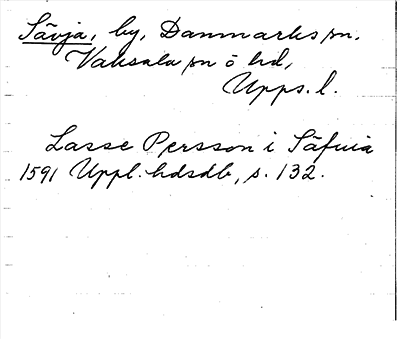 Sävja, by, Danmarks sn,
Vaksala sn o hd,
Upps. l.
Lasse Persson i Säfuia
1591 Uppl. hdsdb, s. 132.